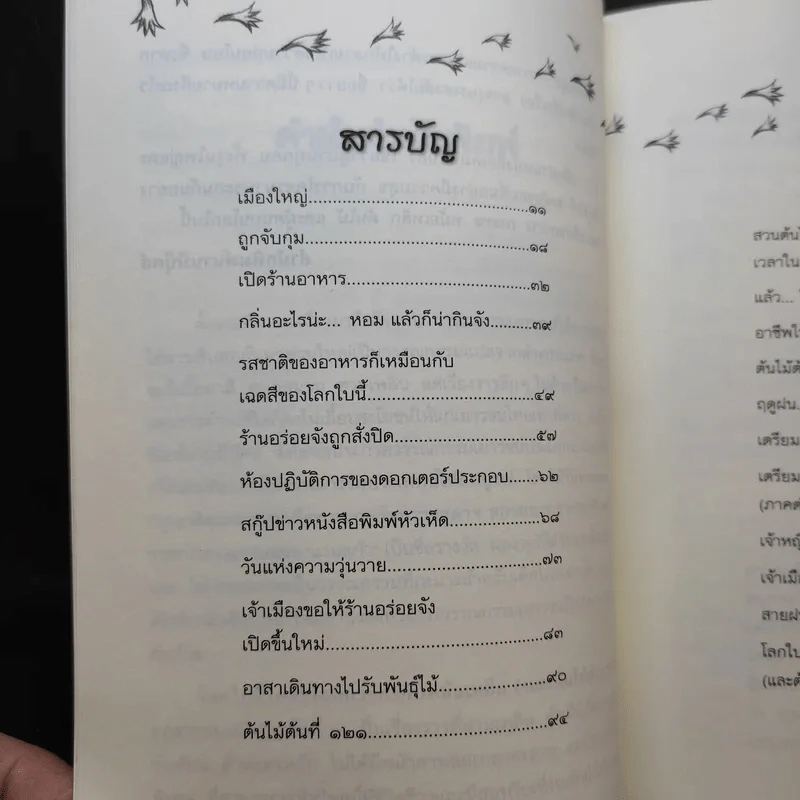 สารบัญ
เมืองใหญ่................................................๑๑
ถูกจับกุม................................................๑๘
เปิดร้านอาหาร........................................๓๒
กลิ่นอะไรน่ะ... หอม แล้วก็น่ากินจัง.........๓๙
รสชาติของอาหารก็เหมือนกับ
เฉดสีของโลกใบนี้...................................๔๙
ร้านอร่อยจังถูกสั่งปิด..............................๕๗
ห้องปฏิบัติการของดอกเตอร์ประกอบ......๖๒
สกู๊ปข่าวหนังสือพิมพ์หัวเห็ด...................๖๘
วันแห่งความวุ่นวาย.................................๗๓
เจ้าเมืองขอให้ร้านอร่อยจัง
เปิดขึ้นใหม่.............................................๘๓
อาสาเดินทางไปรับพันธุ์ไม้......................๙๐
ต้นไม้ต้นที่ ๑๒๑.....................................๙๔
เวลาใน
แล้ว...
ฤดูฝน
(และต้